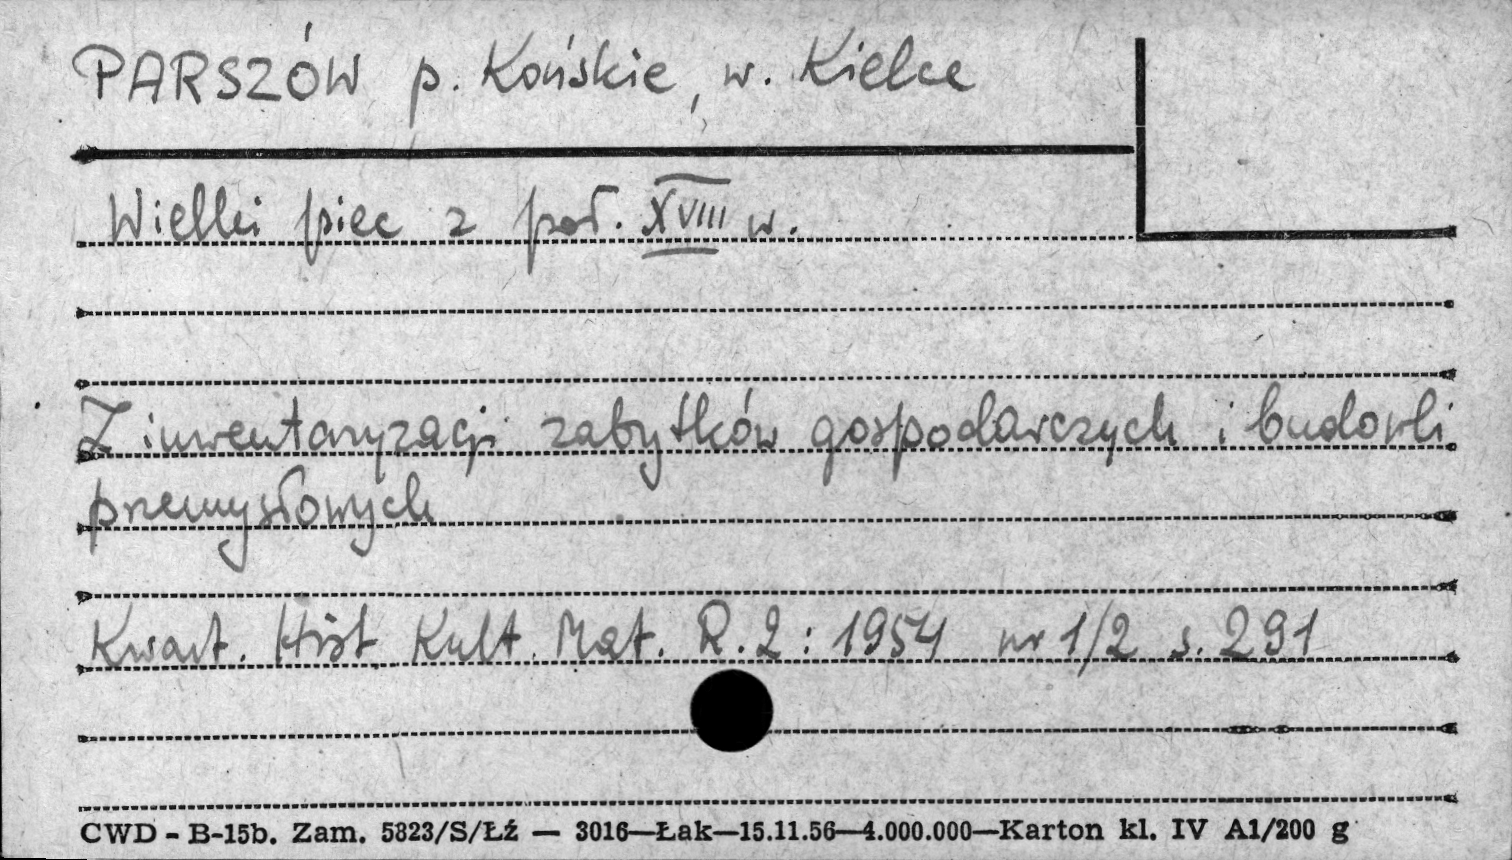 PARSZÓW p. Końskie, w. Kielce
Wielki piec z poł. XVIII w.
Z inwentaryzacji zabytków gospodarczych i budowli
przemysłowych
Kwart. Hist. Kult. Mat. R. 2 : 1954 nr 1/2 s. 291
CWD - B-15b. Zam. 5823/S/Łź — 3016—Łak—15.11.56—4.000.000—Karton kl. IV A1/200 g